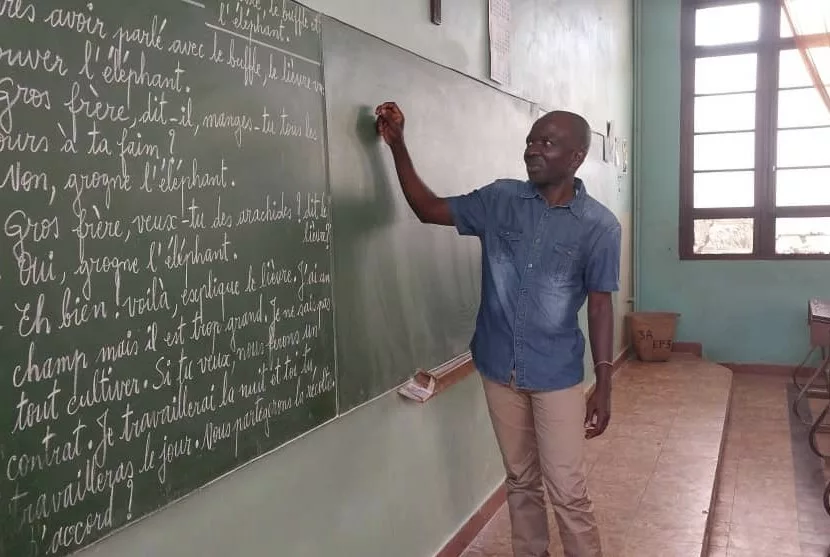 le buffle et
l'éléphant.
rès avoir parlé avec le buffle, le lièvre va
ouver l'éléphant.
Gros frère, dit-il, manges-tu tous les
ours à ta faim ?
Non, grogne l'éléphant.
Gros frère, veux-tu des arachides ? dit le
lièvre ?
Oui, grogne l'éléphant.
Eh bien ! voilà, explique le lièvre. J'ai un
champ mais il est trop grand. Je ne sais pas
tout cultiver. Si tu veux, nous ferons un
contrat. Je travaillerai la nuit et toi, tu
travailleras le jour. Nous partagerons la récolte
D'accord ?
3A
EP3